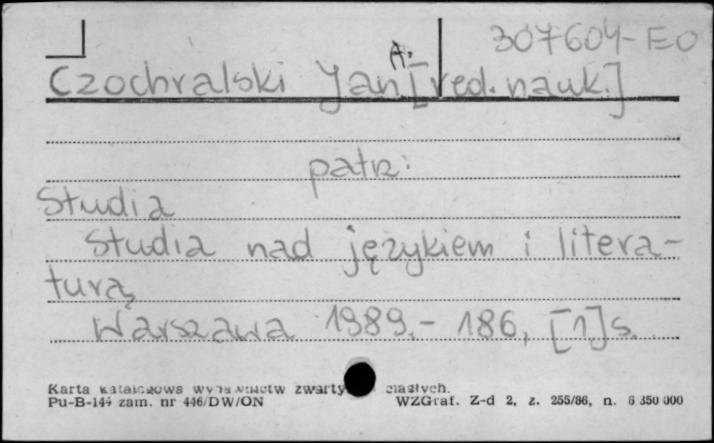 307604-EO
Czochralski Jan A. [red. nauk.]
patrz:
Studia
Studia nad językiem i litera-
turą
Warszawa 1989.- 186, [1] s.
Karta katalogowa wydawnictw zwartych ciągłych.
Pu-B-144 zam. nr 446/DW/ON WZGraf. Z-d 2, z. 255/86, n. 6 350 000